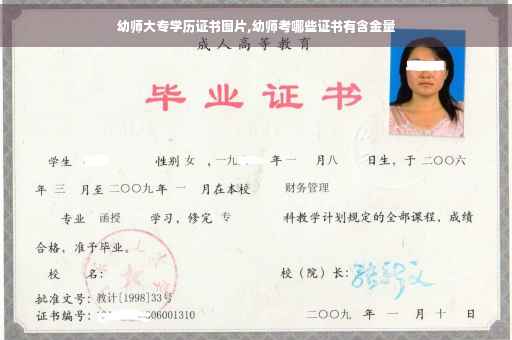 幼师大专学历证书图片,幼师考哪些证书有含金量
成人高等教育
毕业证书
学生 性别 女 ,一九 年 一 月八 日生，于 二〇〇六
年 三 月至 二〇〇九 年 一 月在本校 财务管理
专业 函授 学习，修完 专 科教学计划规定的全部课程，成绩
合格，准予毕业。
校 名： 校（院）长：
批准文号：教计[1998]33号
证书编号： 006001310 二〇〇九 年 一 月 十 日